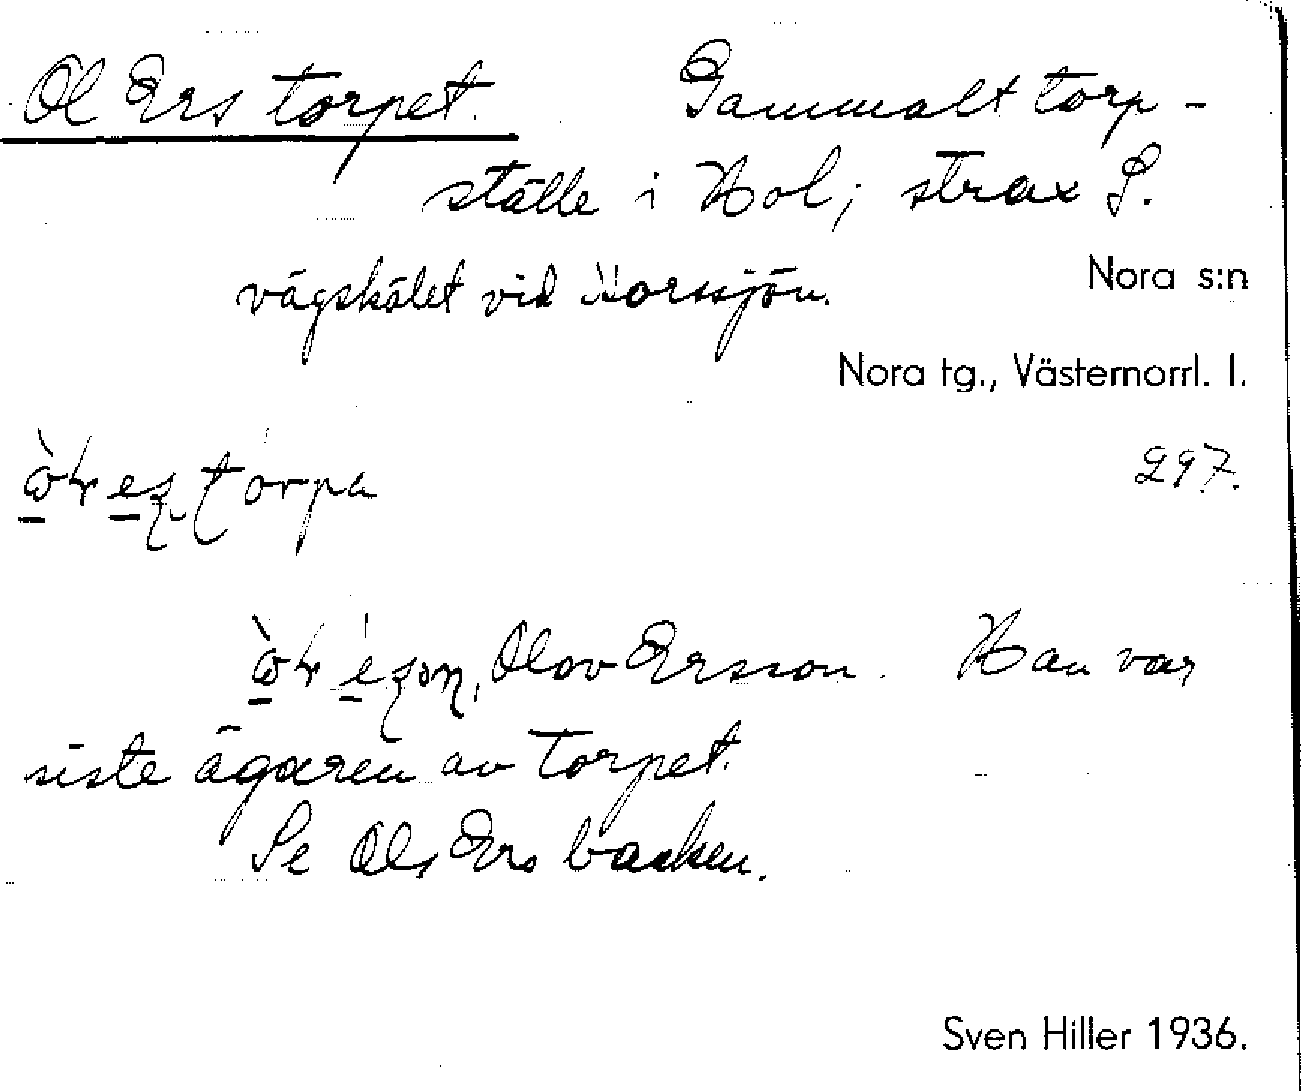 Ol Ers torpet. Gammalt torp-
ställe i Hol; strax S.
vägskälet vid Norssjön.
Nora s:n
Nora tg., Västernorrl. l.
297.
torpa
Olov Ersson. Han var
siste ägaren av torpet.
Se Ols Ers backen.
Sven Hiller 1936.